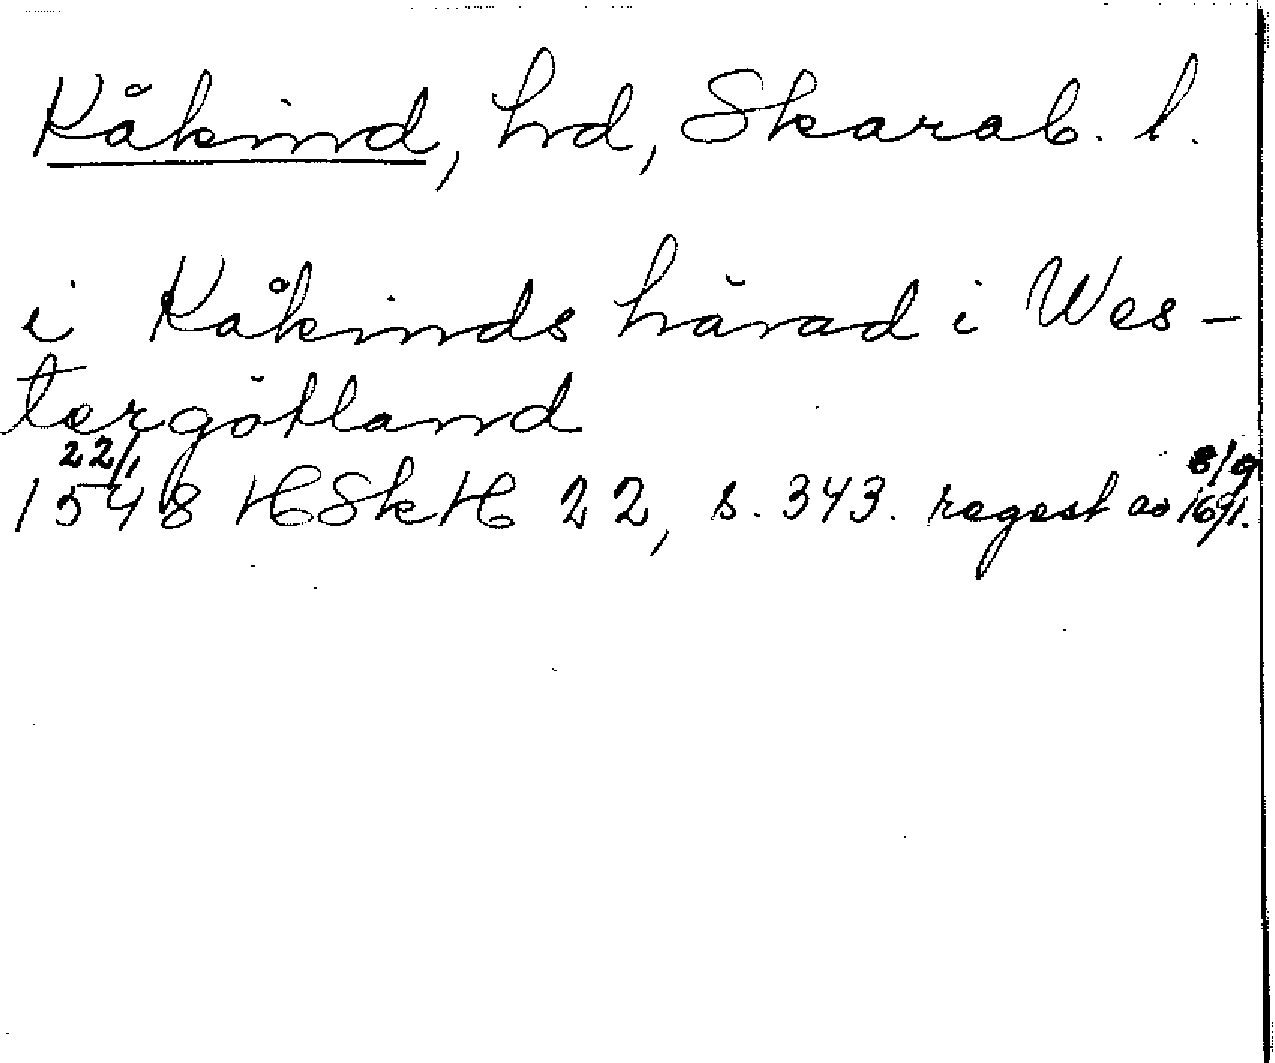 Kåkind, hd, Skarab. l.
i Kåkinds härad i Wes-
tergötland
22/1 1548 HSkH 22, s. 343. regest av 8/9 1691.